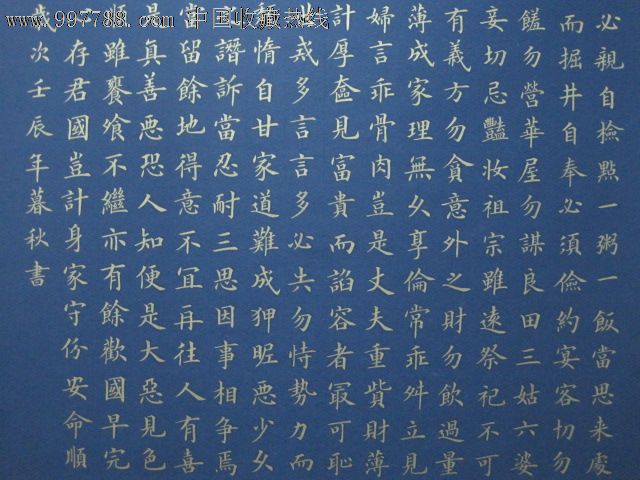 www.997788.com 中国收藏热线
必親自檢點一粥一飯當思來處
而掘井自奉必須儉約宴客切勿
饈勿營華屋勿謀良田三姑六婆
妾切忌豔妆祖宗雖遠祭祀不可
有義方勿貪意外之財勿飲過量
薄成家理無久享倫常乖舛立見
婦言乖骨肉豈是丈夫重貲財薄
計厚奩見富貴而諂容者最可恥
戒多言言多必失勿恃勢力而
惰自甘家道難成狎昵恶少久
譖訴當忍耐三思因事相争焉
當留餘地得意不宜再往人有喜
是真善恶恐人知便是大惡見色
順雖饔飧不繼亦有餘歡國早完
存君國豈計身家守份安命順
歲次壬辰年暮秋書